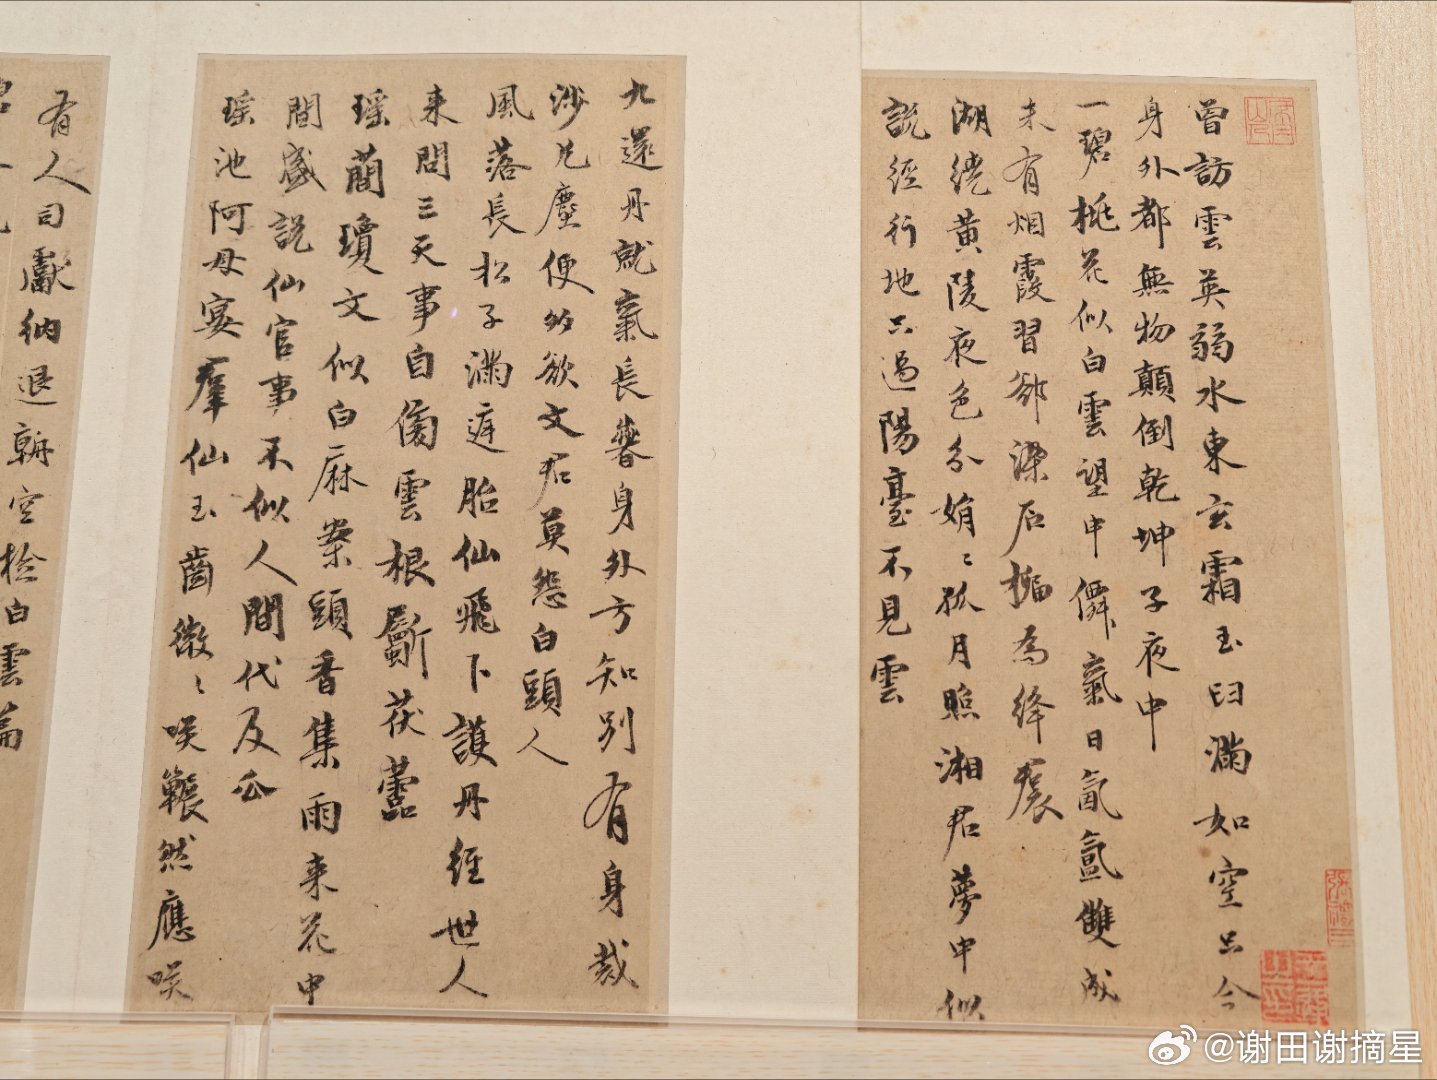 曾訪雲英弱水東玄霜玉臼滿如空只今
身外都無物顛倒乾坤子夜中
一碧桃花似白雲望中僊氣日氤氳雙成
未有烟霞習卻染石榴為絳裠
湖繞黄陵夜色分娟〻孤月照湘君夢中似
說經行地只過陽臺不見雲
九還丹就氣長春身外方知別有身裁
沙凡塵便欲文君莫怨白頭人
風落長松子滿庭胎仙飛下護丹經世人
来問三天事自傷雲根斸茯薹
瑶蕳瓊文似白麻案頭香集雨来花中
間盛説仙官事不似人間代及瓜
瑶池阿母宴羣仙玉齒微〻咲輾然應咲
有人司獻納退朝空檢白雲篇
@谢田谢摘星